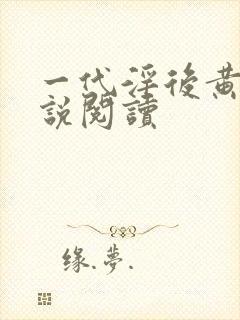 一代淫後黃
說閱讀
缘.夢.